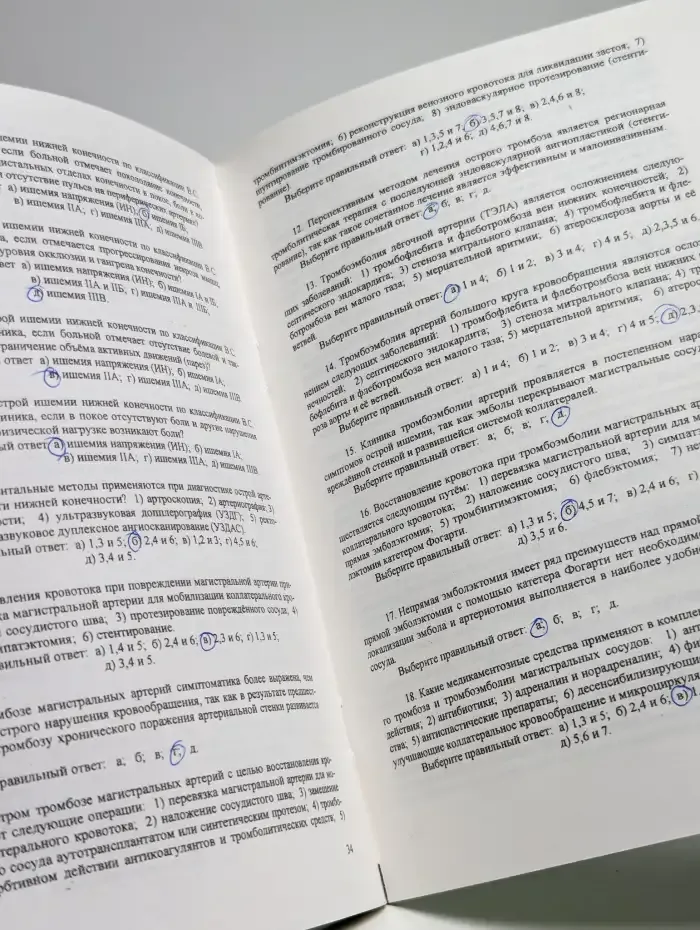 ишемии нижней конечности по классификации В.С.
если больной отмечает похолодание конечности,
дистальных отделах конечности в покое, боли в
отсутствие пульса на периферических артериях?
а) ишемия напряжения (ИН); б) ишемия IБ;
в) ишемия IIА; г) ишемия IIIА; д) ишемия IIIВ.
ишемии нижней конечности по классификации В.С.
а, если отмечается прогрессирования некроза мышц,
уровня окклюзии и гангрена конечности?
ответ а) ишемия напряжения (ИН); б) ишемия IА и IБ;
в) ишемия IIА и IIБ; г) ишемия IIIА и IIIБ;
д) ишемия IIIВ.
рой ишемии нижней конечности по классификации В.С.
ника, если больной отмечает отсутствие болевой и так-
раничение объёма активных движений (парез)?
ответ а) ишемия напряжения (ИН); б) ишемия IА;
в) ишемия IIА; г) ишемия IIIА; д) ишемия IIIВ.
строй ишемии нижней конечности по классификации В.С.
линика, если в покое отсутствуют боли и другие нарушения
физической нагрузке возникают боли?
ый ответ а) ишемия напряжения (ИН); б) ишемия IА;
в) ишемия IIА; г) ишемия IIIА; д) ишемия IIIВ.
нтальные методы применяются при диагностике острой арте-
ти нижней конечности? 1) артроскопия; 2) артериография; 3)
ости; 4) ультразвуковая допплерография (УЗДГ); 5) реова-
развуковое дуплексное ангиосканирование (УЗДАС).
ьный ответ: а) 1,3 и 5; б) 2,4 и 6; в) 1,2 и 3; г) 4,5 и 6;
д) 3,4 и 5.
вления кровотока при повреждении магистральной артерии при-
ка магистральной артерии для мобилизации коллатерального кро-
сосудистого шва; 3) протезирование повреждённого сосуда; 4)
ипатэктомия; 6) стентирование.
вильный ответ: а) 1,4 и 5; б) 2,4 и 6; в) 2,3 и 6; г) 1,3 и 5;
д) 3,4 и 5.
мбозе магистральных артерий симптоматика более выражена, чем
строго нарушения кровообращения, так как в результате предшест-
ромбозу хронического поражения артериальной стенки развивается
равильный ответ: а; б; в; г; д.
тром тромбозе магистральных артерий с целью восстановления кро-
т следующие операции: 1) перевязка магистральной артерии для мо-
терального кровотока; 2) наложение сосудистого шва; 3) замещение
о сосуда аутотрансплантатом или синтетическим протезом; 4) тромбо-
рбтивном действии антикоагулянтов и тромболитических средств; 5)
34
тромбинтимэктомия; 6) реконструкция венозного кровотока для ликвидации застоя; 7)
шунтирование тромбированного сосуда; 8) эндоваскулярное протезирование (стенти-
рование)
Выберите правильный ответ: а) 1,3,5 и 7; б) 3,5,7 и 8; в) 2,4,6 и 8;
г) 1,2,4 и 6; д) 4,6,7 и 8.
12. Перспективным методом лечения острого тромбоза является регионарная
тромболитическая терапия с последующей эндоваскулярной ангиопластикой (стенти-
рование), так как такое сочетанное лечение является эффективным и малоинвазивным.
Выберите правильный ответ: а; б; в; г; д.
13. Тромбоэмболия лёгочной артерии (ТЭЛА) является осложнением следую-
щих заболеваний: 1) тромбофлебита и флеботромбоза вен нижних конечностей; 2)
септического эндокардита; 3) стеноза митрального клапана; 4) тромбофлебита и фле-
ботромбоза вен малого таза; 5) мерцательной аритмии; 6) атеросклероза аорты и её
ветвей.
Выберите правильный ответ: а) 1 и 4; б) 1 и 2; в) 3 и 4; г) 4 и 5; д) 2,3,5 и 6
14. Тромбоэмболия артерий большого круга кровообращения являются осло
нением следующих заболеваний: 1) тромбофлебита и флеботромбоза вен нижних
нечностей; 2) септического эндокардита; 3) стеноза митрального клапана; 4) т
бофлебита и флеботромбоза вен малого таза; 5) мерцательная аритмия; 6) атеро
роза аорты и её ветвей.
Выберите правильный ответ: а) 1 и 4; б) 1 и 2; в) 3 и 4; г) 4 и 5; д) 2,3,
15. Клиника тромбоэмболии артерий проявляется в постепенном нар
симптомов острой ишемии, так как эмболы перекрывают магистральные сосу
вреждённой стенкой и развившейся системой коллатералей.
Выберите правильный ответ: а; б; в; г; д.
16. Восстановление кровотока при тромбоэмболии магистральных ар
ществляется следующим путём: 1) перевязка магистральной артерии для м
коллатерального кровотока; 2) наложение сосудистого шва; 3) симпат
прямая эмболэктомия; 5) тромбинтимэктомия; 6) флебэктомия; 7) не
лэктомия катетером Фогарти.
Выберите правильный ответ: а) 1,3 и 5; б) 4,5 и 7; в) 2,4 и 6; г)
д) 3,5 и 6.
17. Непрямая эмболэктомия имеет ряд преимуществ над прямой
прямой эмболэктомии с помощью катетера Фогарти нет необходимо
локализации эмбола и артериотомия выполняется в наиболее удобн
сосуда.
Выберите правильный ответ: а; б; в; г; д.
18. Какие медикаментозные средства применяют в компле
го тромбоза и тромбоэмболии магистральных сосудов: 1) ант
действия; 2) антибиотики; 3) адреналин и норадреналин; 4) фи
ства; 5) антиспастические препараты; 6) десенсибилизирующ
улучшающие коллатеральное кровообращение и микроциркуля
Выберите правильный ответ: а) 1,3 и 5; б) 2,4 и 6; в) 1
д) 5,6 и 7.